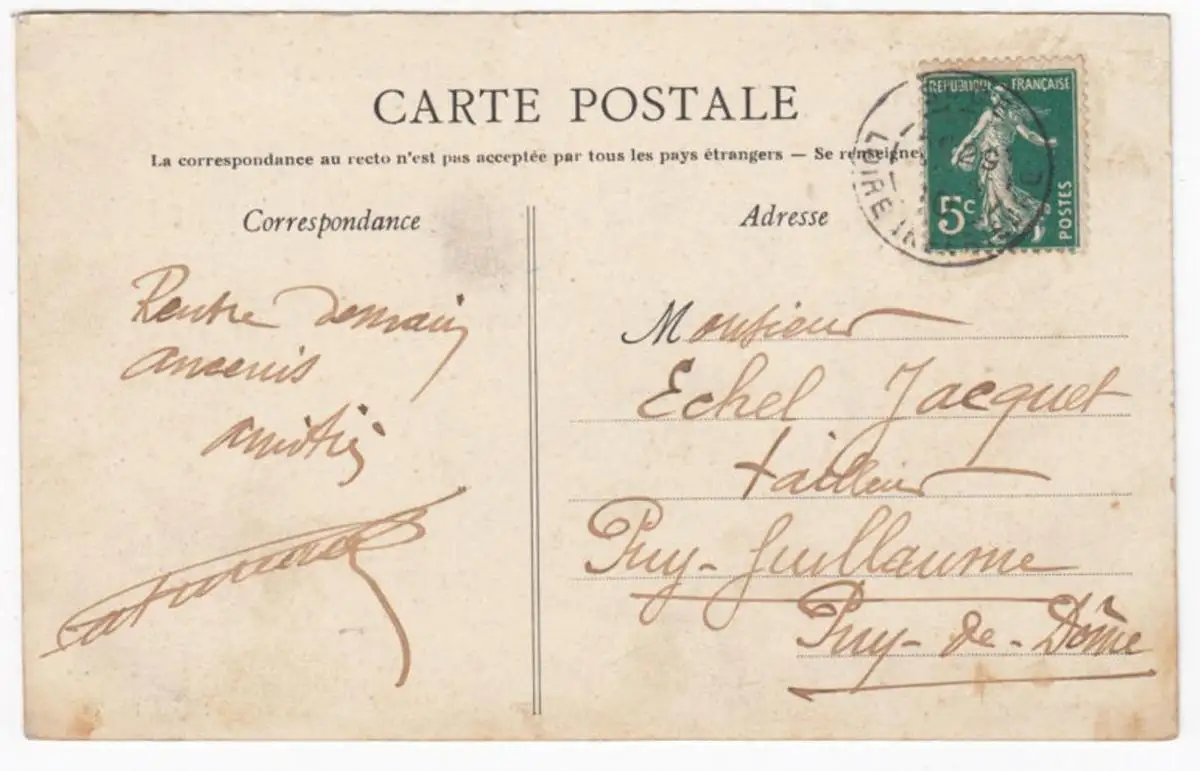 CARTE POSTALE
La correspondance au recto n'est pas acceptée par tous les pays étrangers — Se renseigne
REPUBLIQUE FRANÇAISE
5c
POSTES
LOIRE IN
Correspondance
Adresse
Rentre demain
Ancenis
amitiés
Monsieur
Echel Jacquet
tailleur
Puy-Guillaume
Puy-de-Dôme